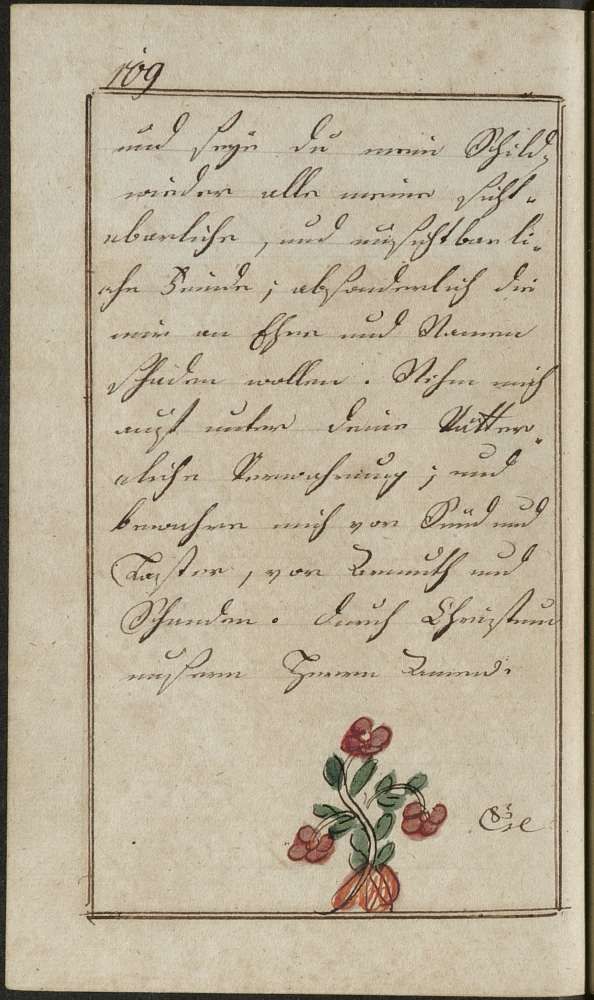 109
und seye du mein Schild,
wieder alle meine sicht-
ebarliche, und unsichtbarli-
che Feinde; absonderlich die
mir an Ehre und Namen
schaden wollen. Nihm mich
auch unter deine Vätter-
liche Verwahrung; und
bewahre mich vor Sünd und
Laster, vor Armuth und
Schanden. durch Christum
unsern Herrn Amen.